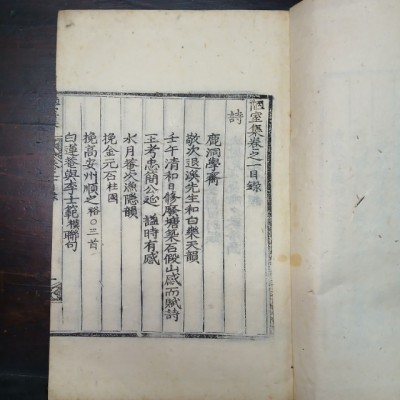 室集卷之一目錄
詩
鹿洞學齋
敬次退溪先生和白樂天韻
壬午清和日修廢塘築石假山感而賦詩
王考忠簡公延謚時有感
水月菴次漁隱韻
挽金元石柱國
挽高安州順之裕〇三首
白蓮菴與李士範模聯句